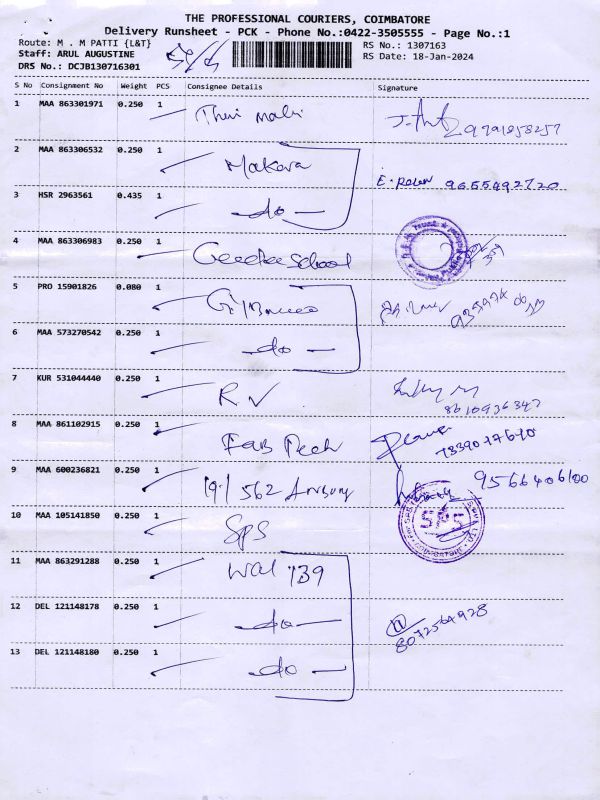 THE PROFESSIONAL COURIERS, COIMBATORE
Delivery Runsheet - PCK - Phone No.:0422-3505555 - Page No.:1
Route: M . M PATTI {L&T} RS No.: 1307163
Staff: ARUL AUGUSTINE RS Date: 18-Jan-2024
DRS No.: DCJB130716301
S No Consignment No Weight PCS Consignee Details Signature
1 MAA 863301971 0.250 1 9791858257
2 MAA 863306532 0.250 1 Makara 9655492720
3 HSR 2963561 0.435 1 -do-
4 MAA 863306983 0.250 1 School
5 PRO 15901826 0.080 1
6 MAA 573270542 0.250 1 -do-
7 KUR 531044440 0.250 1 RV 8610936342
8 MAA 861102915 0.250 1 Fab Tech 7339017670
9 MAA 600236821 0.250 1 562 9566406100
10 MAA 105141850 0.250 1 SPS SPS
11 MAA 863291288 0.250 1 139
12 DEL 121148178 0.250 1 -do- 8072564928
13 DEL 121148180 0.250 1 -do-